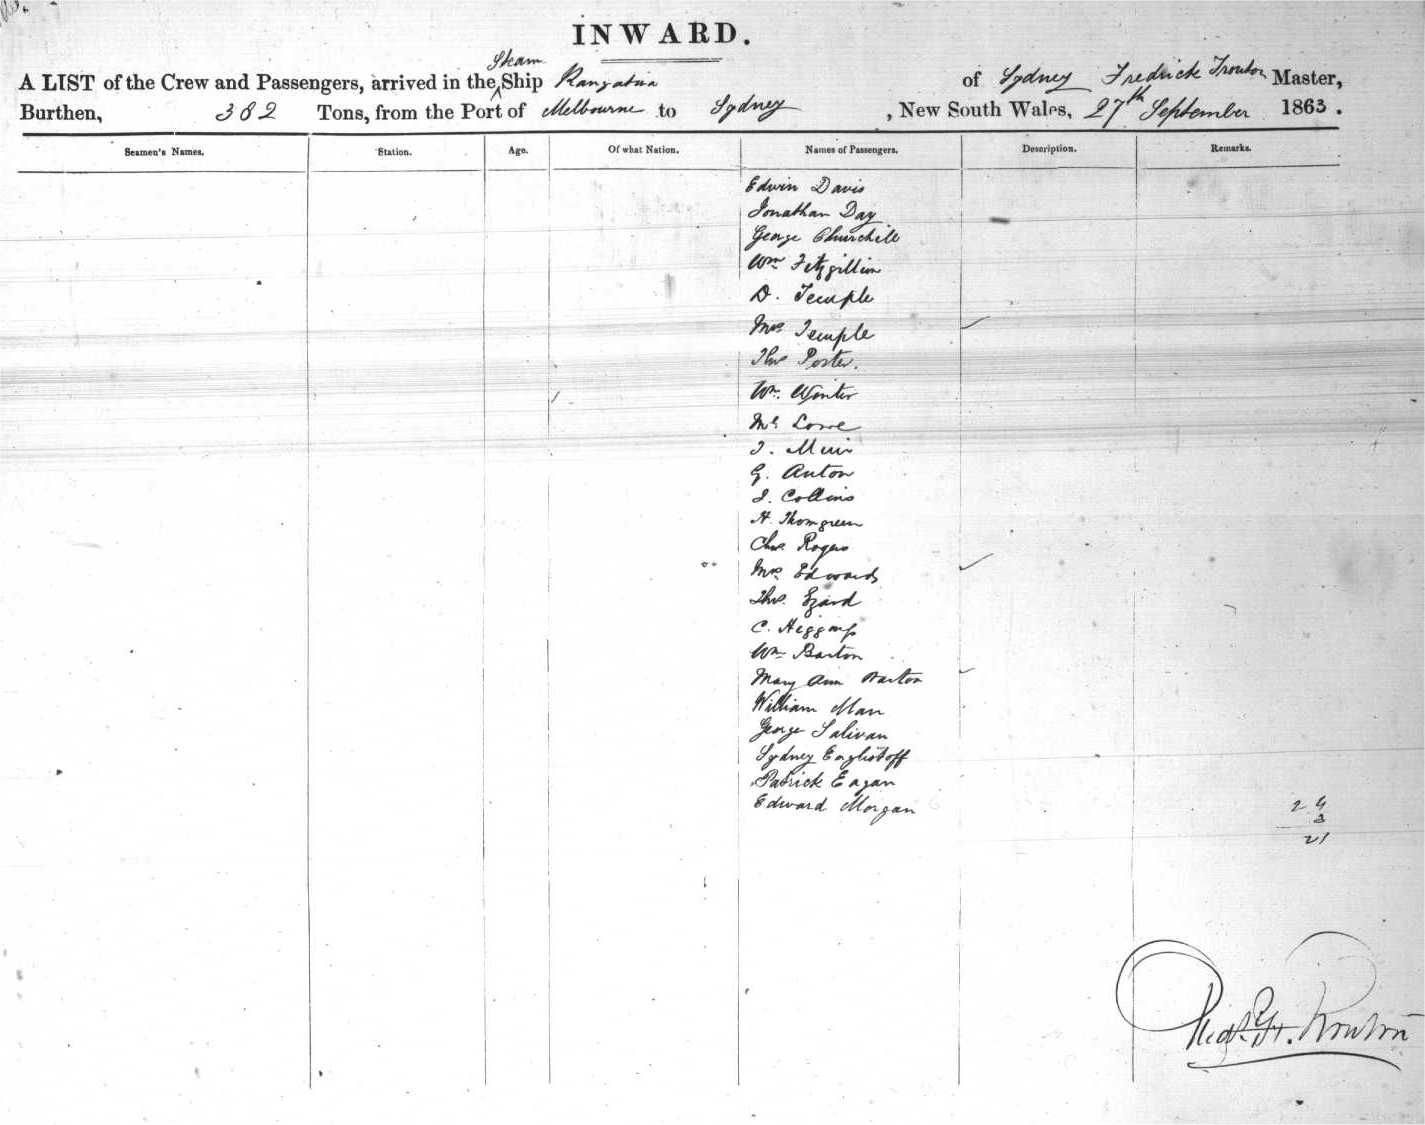 INWARD.
Steam
A LIST of the Crew and Passengers, arrived in the Ship Rangatira of Sydney Fredrick Trouton Master,
Burthen, 382 Tons, from the Port of Melbourne to Sydney, New South Wales, 27th September 1863.
Seamen's Names. Station. Age. Of what Nation. Names of Passengers. Description. Remarks.
Edwin Davis
Jonathan Day
George Churchill
Wm Fitzgillim
D. Temple
Mrs Temple
Thos Porter.
Wm. Winter
Mr Lowe
J. Muir
G. Anton
J. Collins
H. Thomgreen
Chas. Rogers
Mrs. Edwards
Thos. Izard
C.
Wm Barton
Mary Ann Barton
William Man
George Salivan
Sydney
Patrick Eagan
Edward Morgan
24
3
21
Fredk. H. Trouton